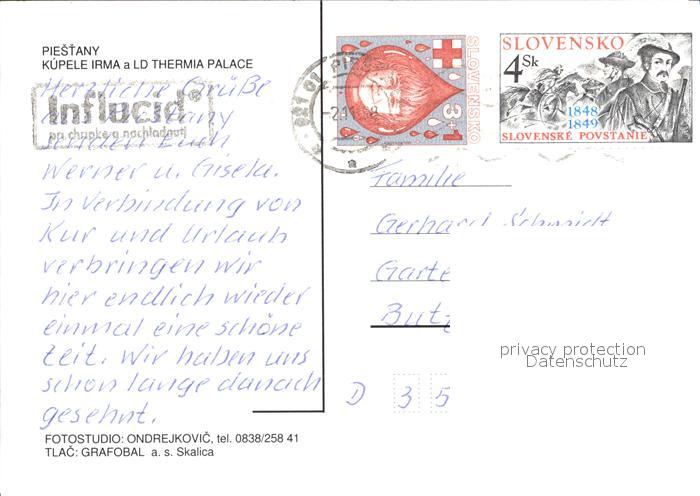 PIEŠŤANY
KÚPELE IRMA a LD THERMIA PALACE
Herzliche Grüße
Influcid®
pri chrípke a nachladnutí
senden Euch
Werner u. Gisela.
In Verbindung von
Kur und Urlaub
verbringen wir
hier endlich wieder
einmal eine schöne
Zeit. Wir haben uns
schon lange danach
gesehnt.
FOTOSTUDIO: ONDREJKOVIČ, tel. 0838/258 41
TLAČ: GRAFOBAL a. s. Skalica
SLOVENSKO
3+1
SLOVENSKO
4 Sk
1848
1849
SLOVENSKÉ POVSTANIE
921 01
a
Familie
Gerhard Schmidt
Garte
Butz
D 35
privacy protection
Datenschutz